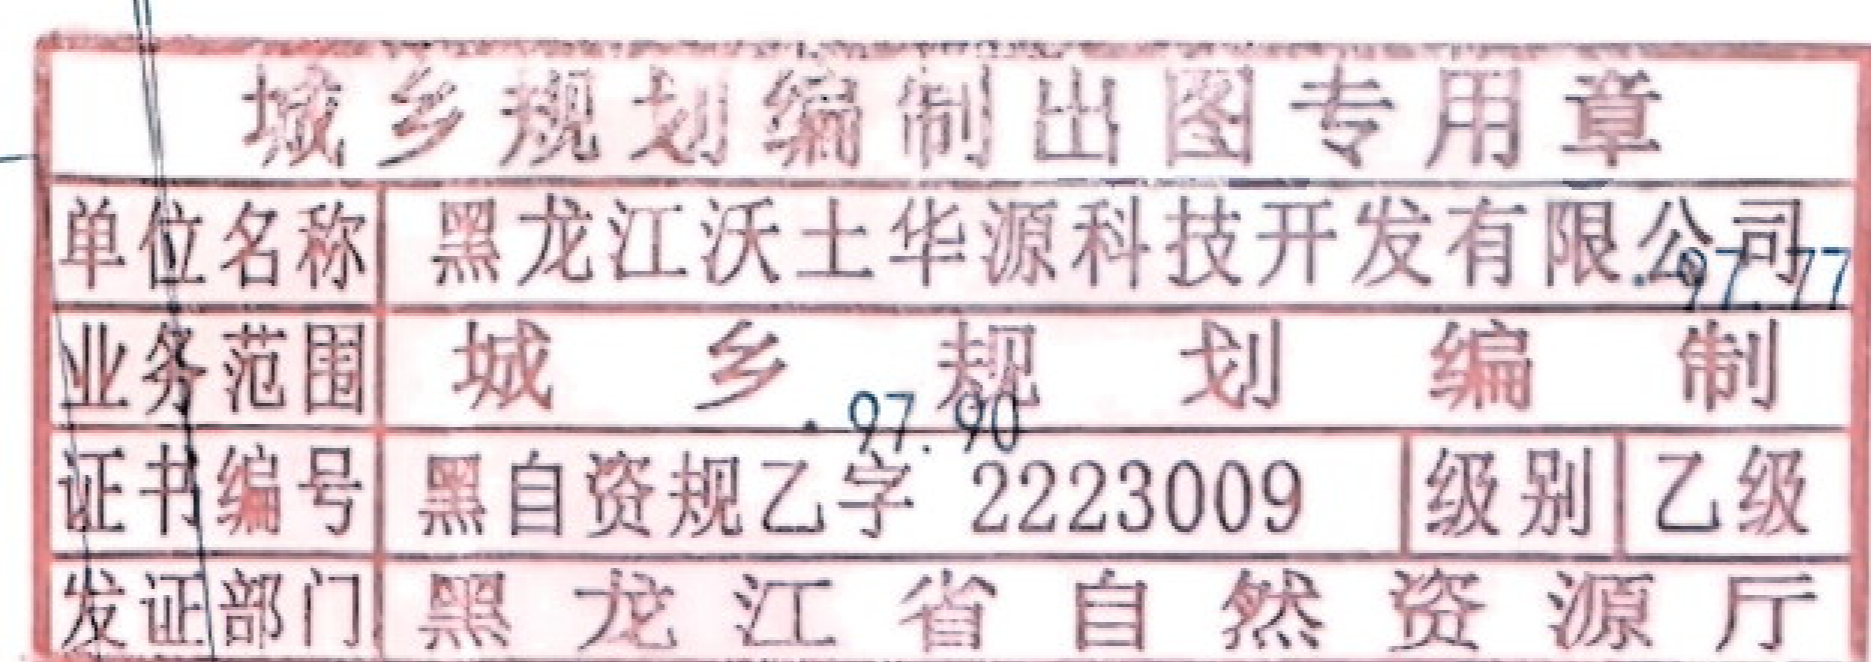 城乡规划编制出图专用章
单位名称 黑龙江沃土华源科技开发有限公司
97.77
业务范围 城乡规划编制
97.90
证书编号 黑自资规乙字 2223009 级别 乙级
发证部门 黑龙江省自然资源厅